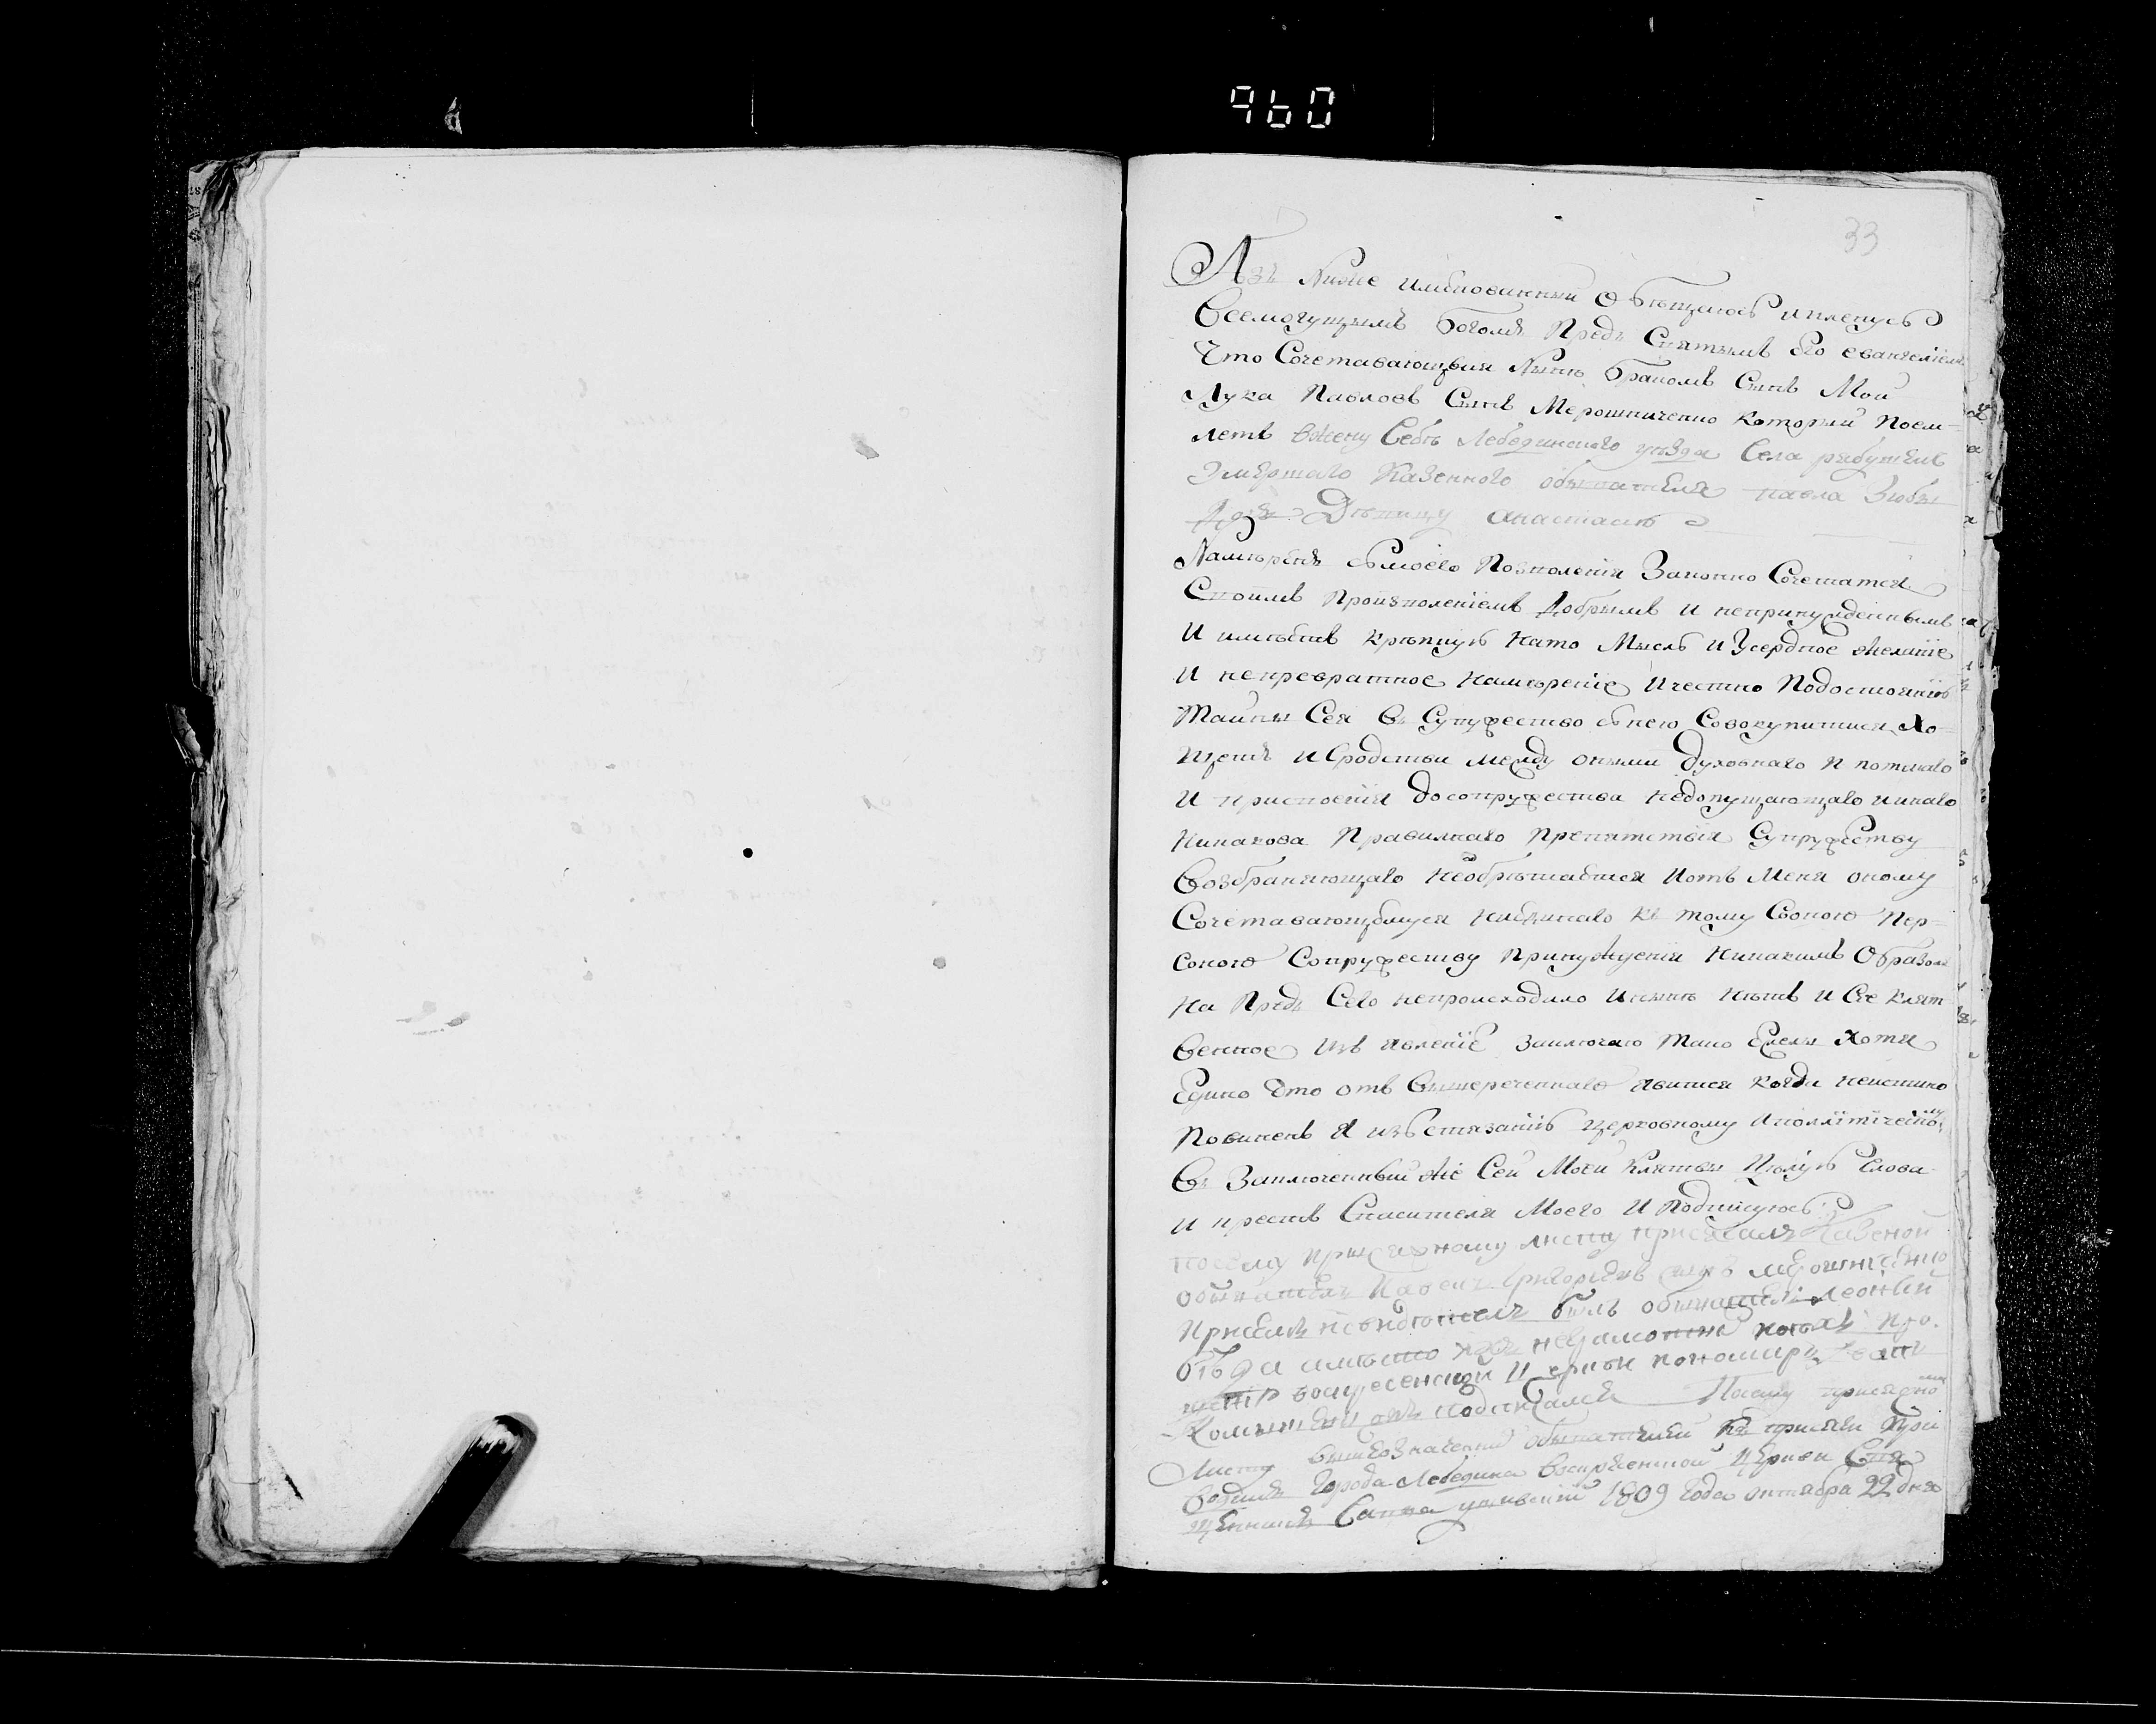 960
33
Азъ Ниже имѣнованный Обѣщаюсь и кленусь
Всемогущымъ Богомъ Предъ Святымъ Его евангелием
Что Сочетавающыйся Нынѣ бракомъ Сынъ Мой
Лука Павловъ Сынъ Мерошниченко который поем-
летъ вжену Себѣ Лебединского уѣзда Села рябушекъ
умершаго Казенного обывателя павла Зюбы
дочь Дѣвицу анастасию
Намѣренъ съмоего Позволенія Законно Сочетатся
Своимъ Произволеніемъ Добрымъ и непринужденнымъ
И имѣетъ крѣпкую Нато Мысль и Усердное желаніе
И непревратное намѣреніе Ичестно Подостоянію
Тайны Сея Въ Супружество снею Совокупитися Хо-
щетъ и Сродства между оными духовнаго и плотскаго
И присвоенія до сопружества недопущающаго инаго
Никакова Правилнаго Препятствія Супружеству
Возбраняющаго Необрѣтается Иотъ Меня оному
Сочетавающемуся ни къ тому Своною Пер-
соною Сопружеству Принужденія Никакимъ Образом
На Предъ Сего непроисходило Инынѣ Нѣтъ и Сіе клят
венное изъявленіе заключаю тако Ежелы Хотя
Едино Что отъ Вышереченнаго явится когда неистино
Повиненъ я изъстязанію церковному Иполлитическо му
Въ Заключеніи же Сей Моей Клятвы Цѣлую Слова
и крестъ Спасителя Моего И Подписуюсь
посему присяжному листу присягалъ Казеной
обыватель Павелъ Григоріевъ сынъ мерошниченко
присемъ свидѣтелъ былъ обыватель леонтий
бѣда вмѣсто ихъ неграмотныхъ поихъ про-
шенію воскресенской церкви пономарь
подписался Посему присяжно му
Листу вышеозначеный обыватели къ присяги при
водилъ Города Лебедина воскресенской церкви Свя
щенникъ Савва 1809 года октября 22 дня